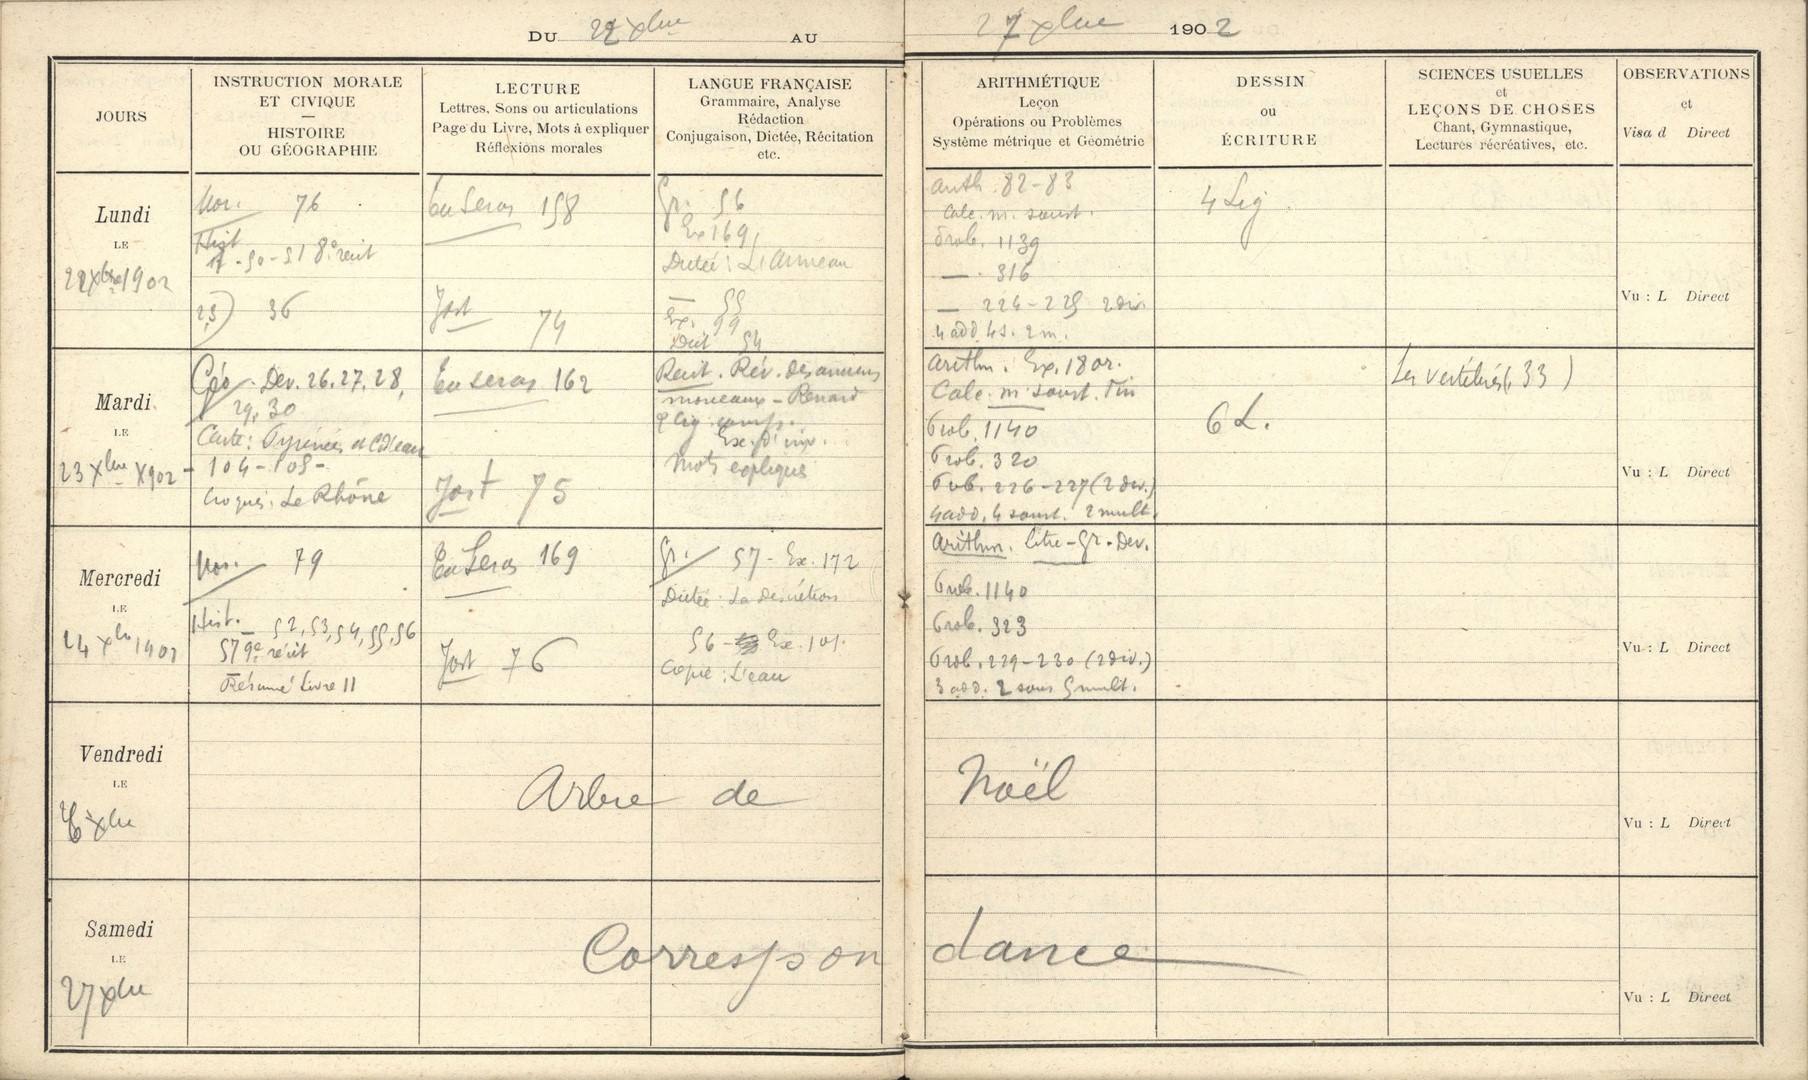 DU 22 xbre AU 27 xbre 1902
JOURS
INSTRUCTION MORALE
ET CIVIQUE
HISTOIRE
OU GÉOGRAPHIE
LECTURE
Lettres, Sons ou articulations
Page du Livre, Mots à expliquer
Réflexions morales
LANGUE FRANÇAISE
Grammaire, Analyse
Rédaction
Conjugaison, Dictée, Récitation
etc.
ARITHMÉTIQUE
Leçon
Opérations ou Problèmes
Système métrique et Géométrie
DESSIN
ou
ÉCRITURE
SCIENCES USUELLES
et
LEÇONS DE CHOSES
Chant, Gymnastique,
Lectures récréatives, etc.
OBSERVATIONS
et
Visa d Direct
Lundi
LE
22 xbre 1902
Mor. 76
Hist
50-51 8e récit
36
Tu Seras 158
Jost
74
Gr. 56
Ex 169
Dictée : L'Anneau
— 55
Ex. 99
Dict 54
Arith. 82-83
Calc. m. soust.
Prob. 1139
— 316
— 224-225 2 div.
4 add 4 s. 2 m.
4 Lig
Vu : L Direct
Mardi
LE
23 xbre 1902
Géo. Dev. 26, 27, 28,
29, 30
Carte : Pyrénées et C. d'eau
104-105-
Croquis : Le Rhône
Tu seras 162
Jost 75
Récit. Rév. des anciens
morceaux - Renard
Mots expliqués
Arithm. Ex. 18 or.
Calc. m. soust. Fin
Prob. 1140
Prob. 320
Prob. 226-227 (2 div.)
4 add. 4 soust. 2 mult.
6 L.
Les vertébrés (33)
Vu : L Direct
Mercredi
LE
24 xbre 1902
Mor. 79
Hist. — 52, 53, 54, 55, 56
57 9e récit
Résumé Livre II
Tu Seras 169
Jost 76
Gr. 57 - Ex. 172
Dictée : La
56 - Ex. 101.
Copie : L'eau
Arithm. Litre - Gr. - Dev.
Prob. 1140
Prob. 323
Prob. 229-230 (2 div.)
3 add. 2 sous 5 mult.
Vu : L Direct
Vendredi
LE
xbre
Arbre de Noël
Vu : L Direct
Samedi
LE
27 xbre
Correspondance
Vu : L Direct